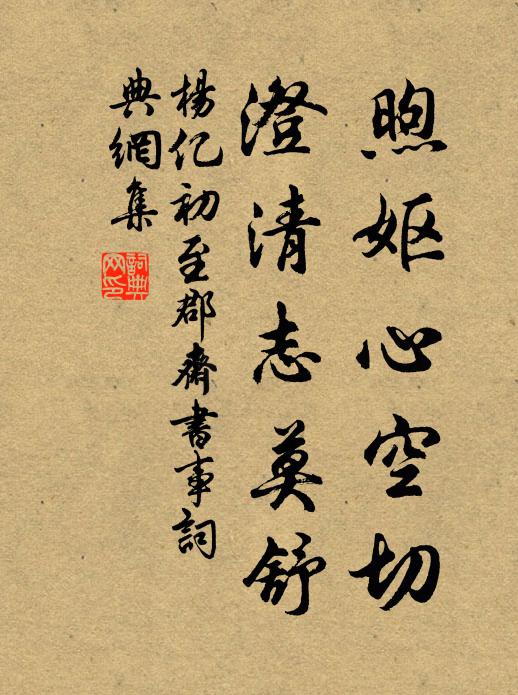 煦妪心空切
澄清志莫舒
杨亿初至郡斋书事词
典网集
词典网印